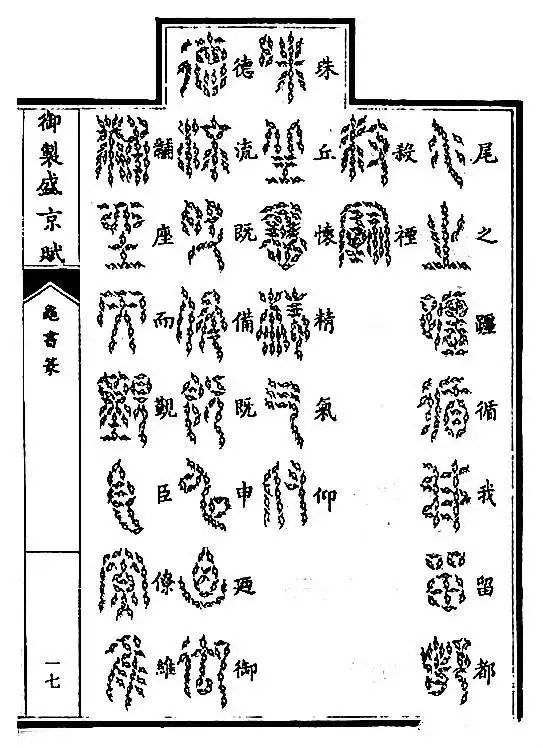 尾之疆循我留都
禋
珠丘懷精氣仰
德流既備既申廼御
黼座而覲臣僚維
御製盛京賦
龜書篆
一七